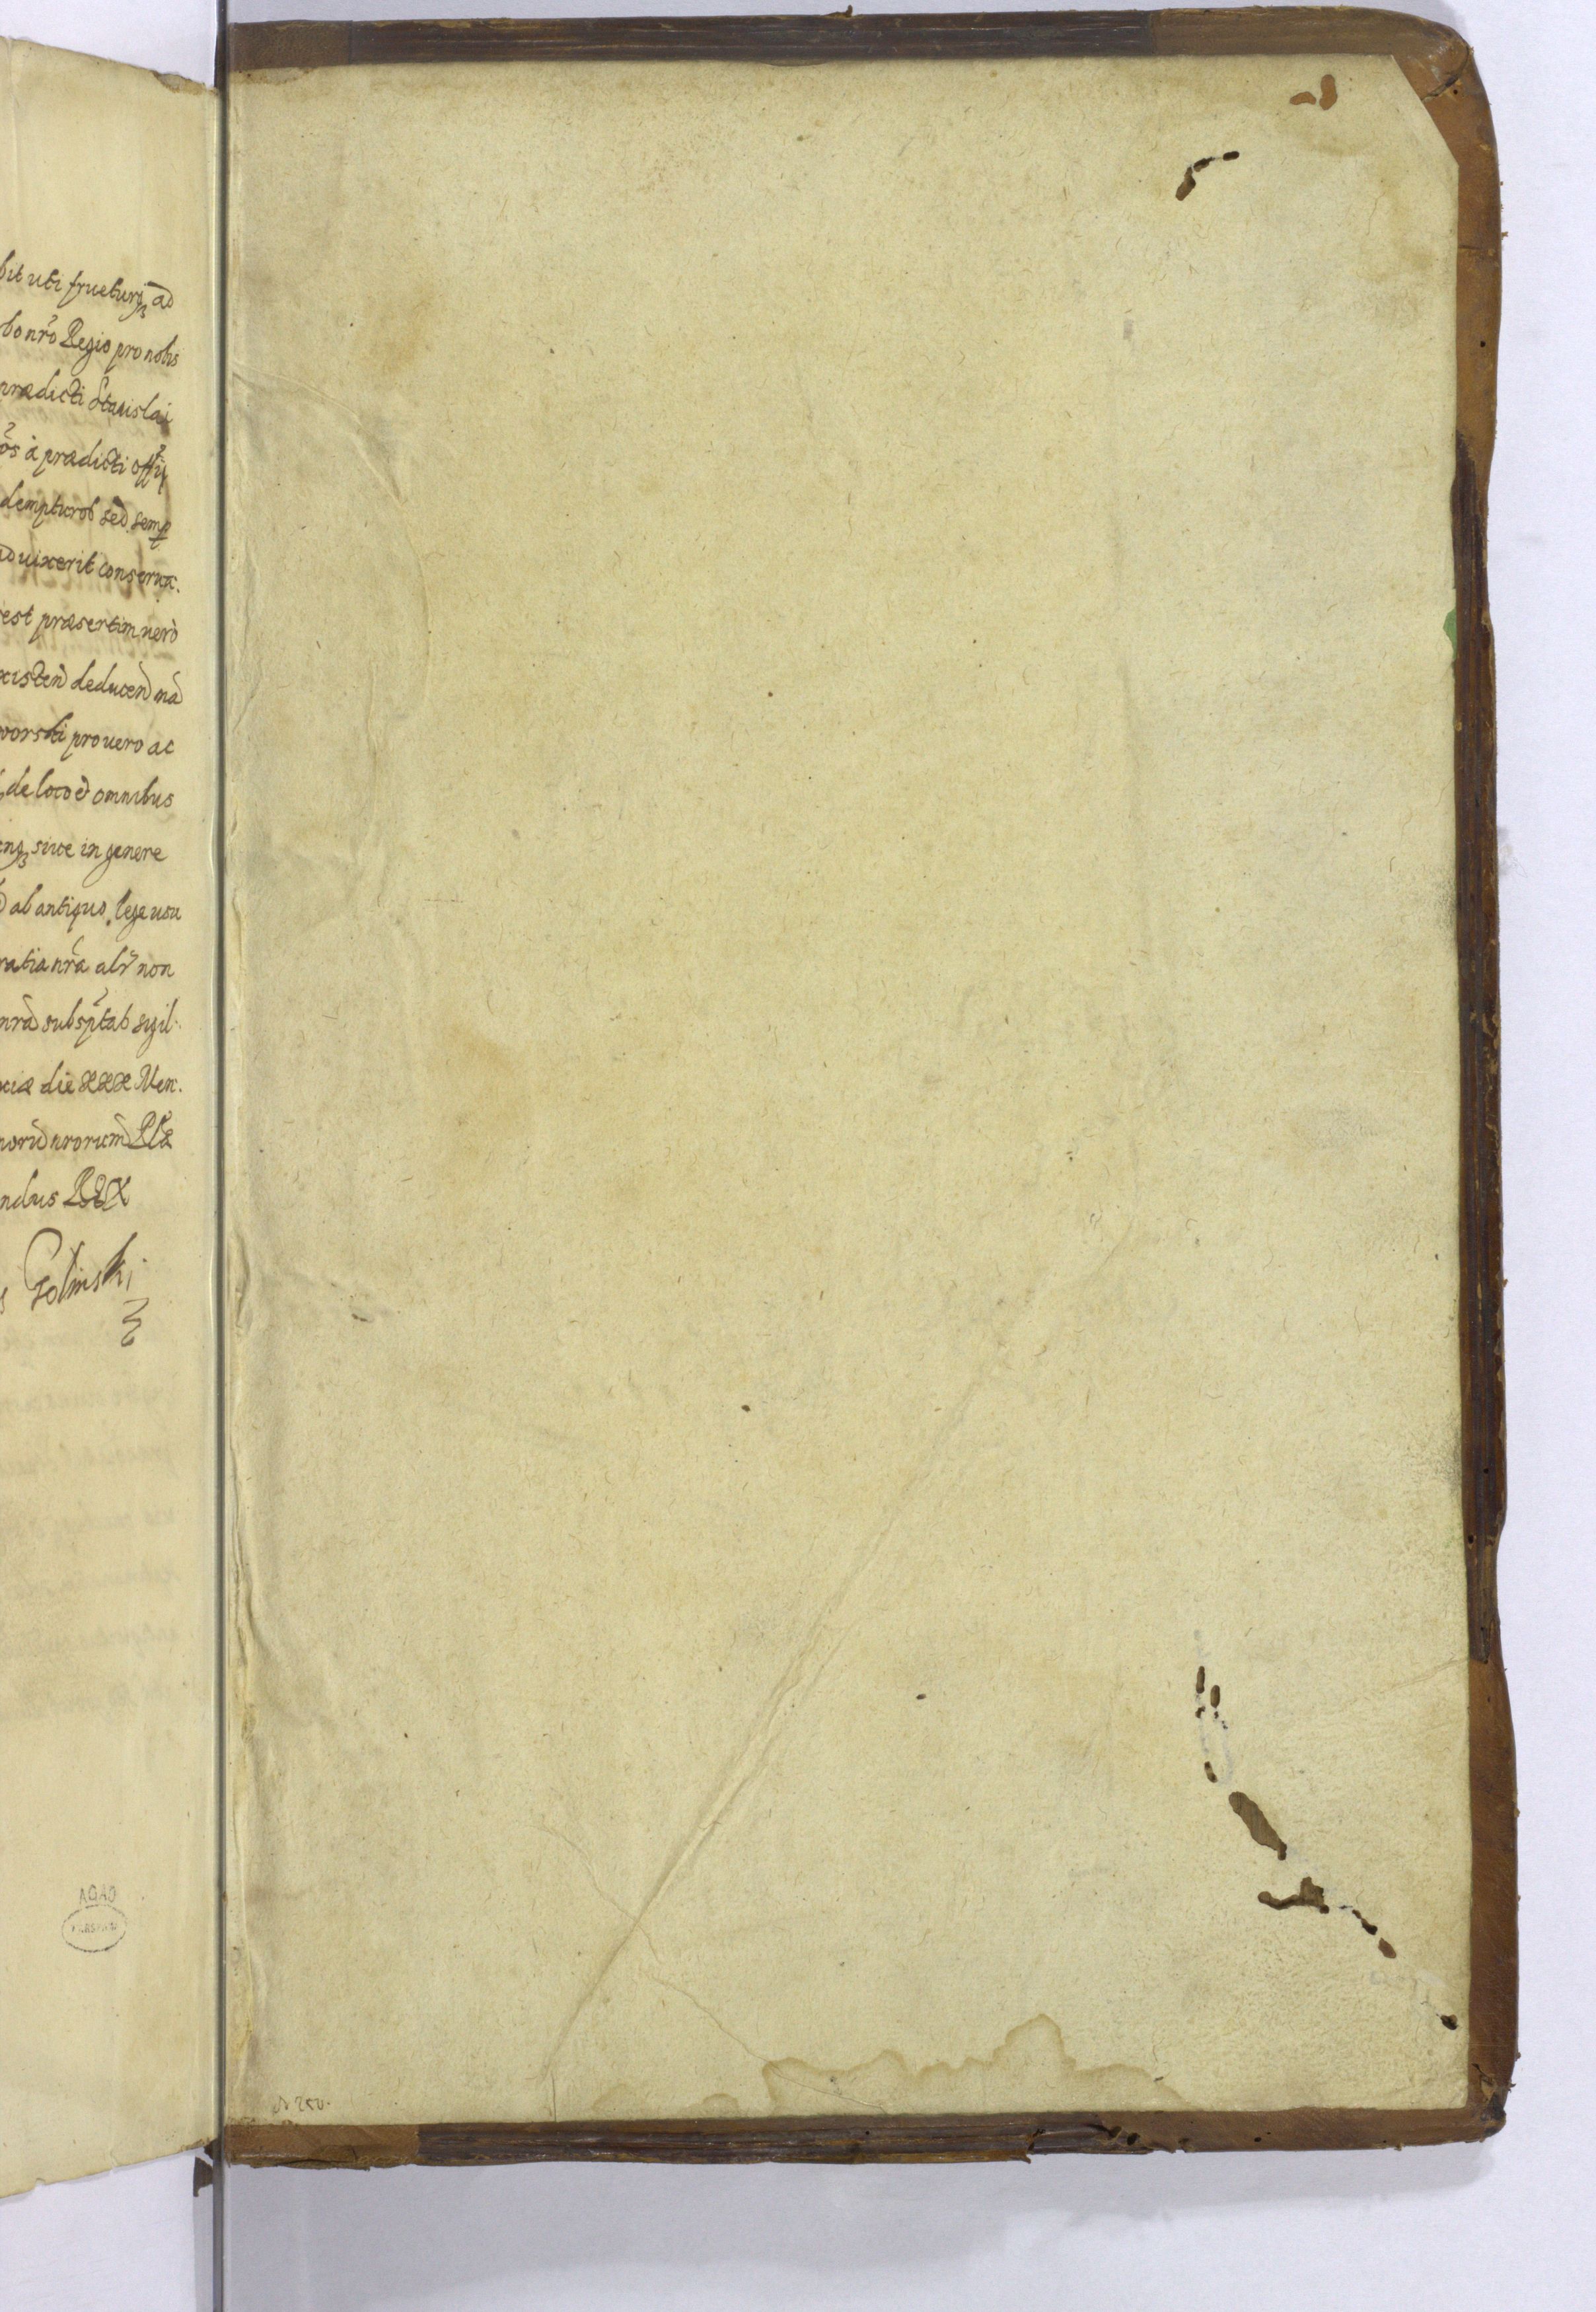 bit uti frueturq ad
bo nrõ Regio pro nobis
prædicti Stanislai
õs à prædicti offii
dempturos sed semp
ad uixerit conserua:
est præsertim uerò
existen deducen nã
worski pro uero ac
de loco et omnibus
inq siue in genere
ab antiquo lege usu
ratia nrã alr non
nrã subsptas sigil-
die XXX Men:
norũ nrorum
ndus REX
s Golinski
AGAD
WARSZAWA
N 250.